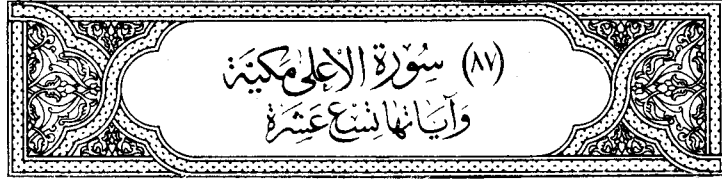 (٨٧) سُورَة الأعْلى مَكيَّة
وَآيَاتُهَا تِسْعَ عَشَرَة